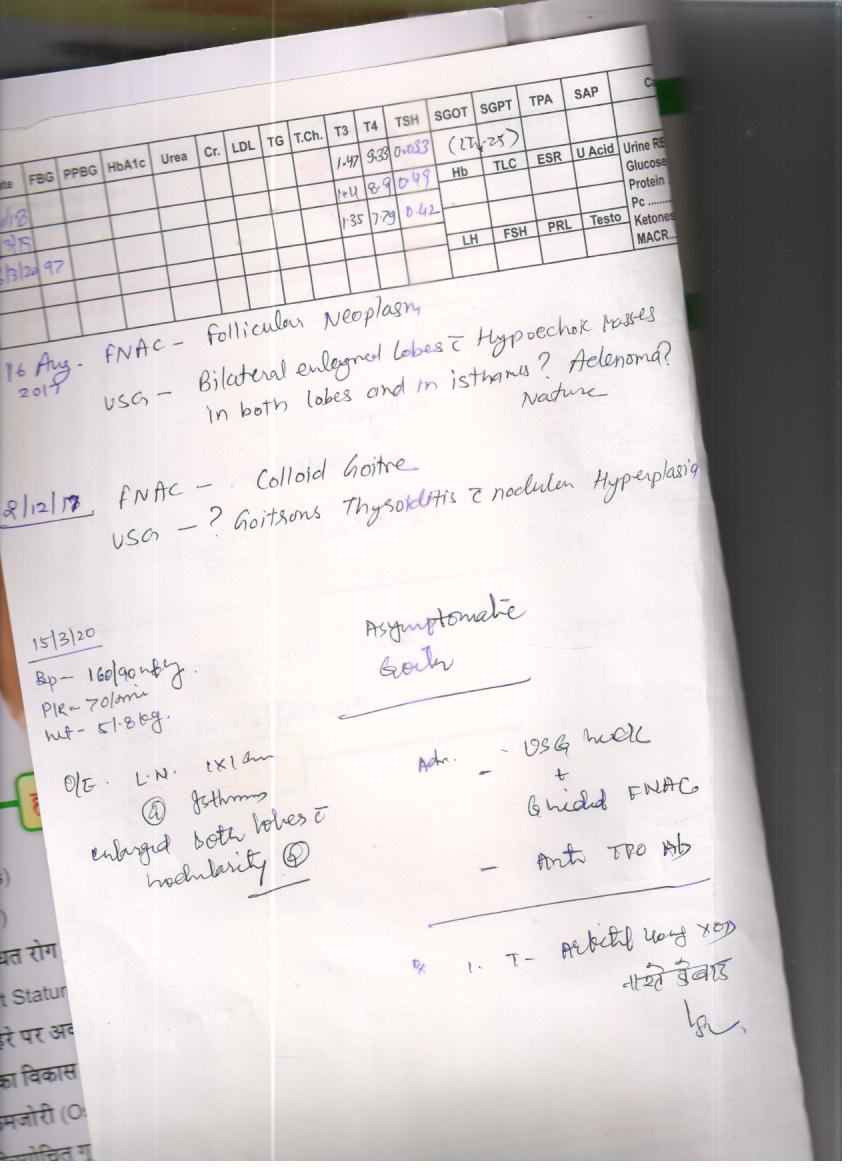 FBG PPBG HbA1c Urea Cr. LDL TG T.Ch. T3 T4 TSH SGOT SGPT TPA SAP
1.47 9.33 0.033
Hb TLC ESR U Acid Urine RE
8.9 0.49
Glucose
Protein
1.35 7.79 0.42
Pc ........
LH FSH PRL Testo Ketones
97
MACR...
16 Aug. FNAC - Follicular Neoplasm
USG - Bilateral enlarged lobes c̄ Hypoechoic Masses
in both lobes and in isthmus? Adenoma?
Nature
FNAC - Colloid Goitre
USG - ? Goitrous Thyroiditis c̄ nodular Hyperplasia
15/3/20
Asymptomatic
Bp - 160/90
PR - 70/min
Wt - 51.8 kg.
O/E. L.N. 1x1 cm
Isthmus
enlarged both lobes c̄
nodularity
Adv. - USG neck
+
Guided FNAC
- Anti TPO Ab
Rx 1. T-
नाश्ते के बाद
यत रोग
t Statur
रे पर अव
का विकास
मजोरी (O